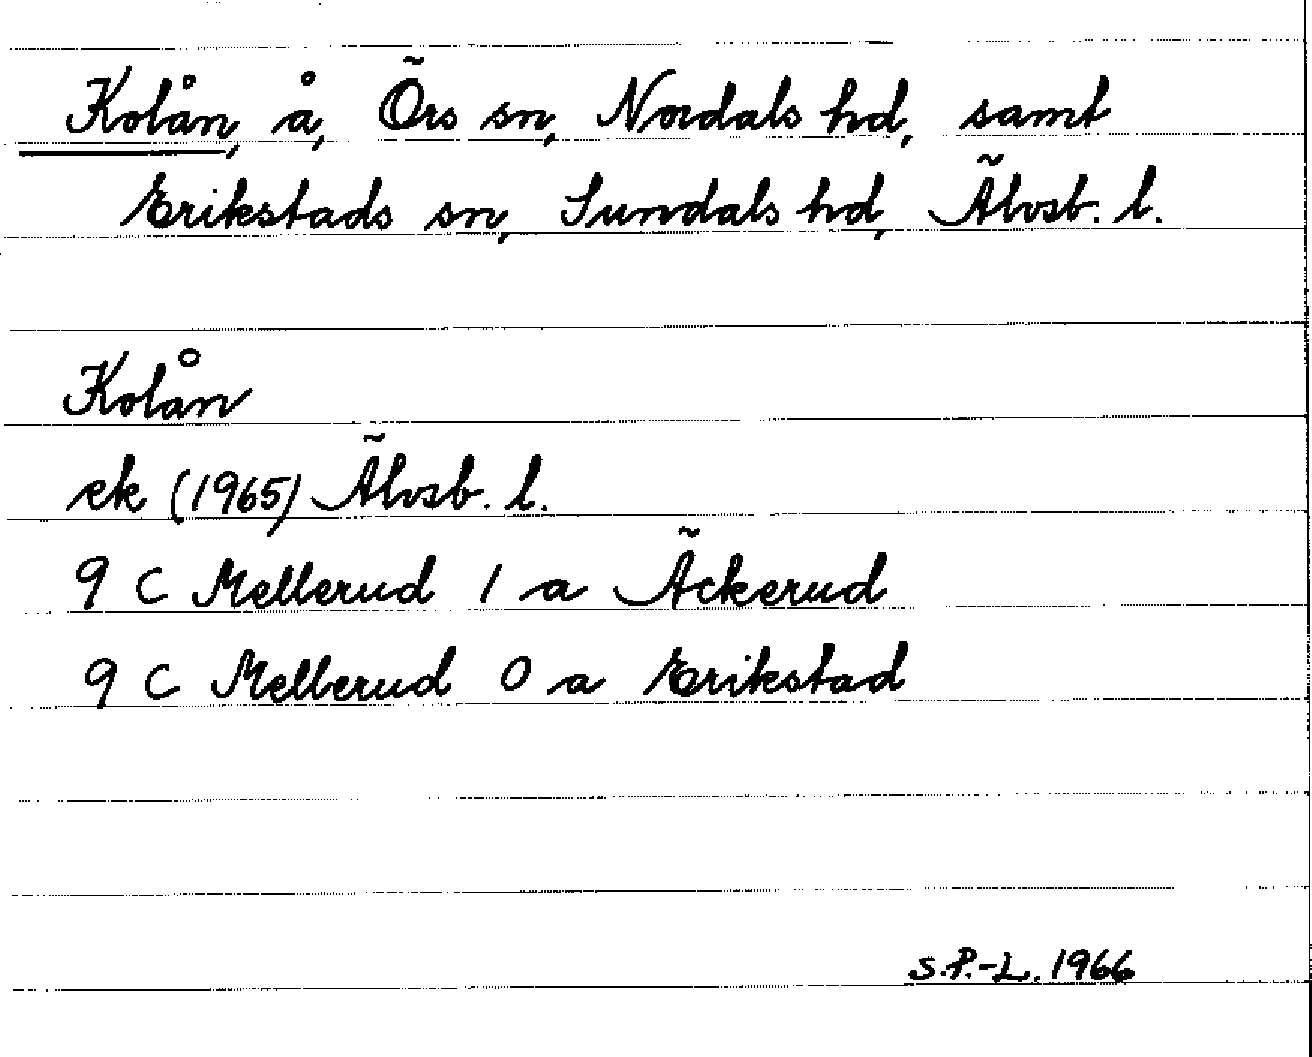 Kolån, å, Örs sn, Nordals hd, samt
Erikstads sn, Sundals hd, Älvsb. l.
Kolån
ek (1965) Älvsb. l.
9 C Mellerud 1 a Äckerud
9 C Mellerud 0 a Erikstad
S.P.-L. 1966